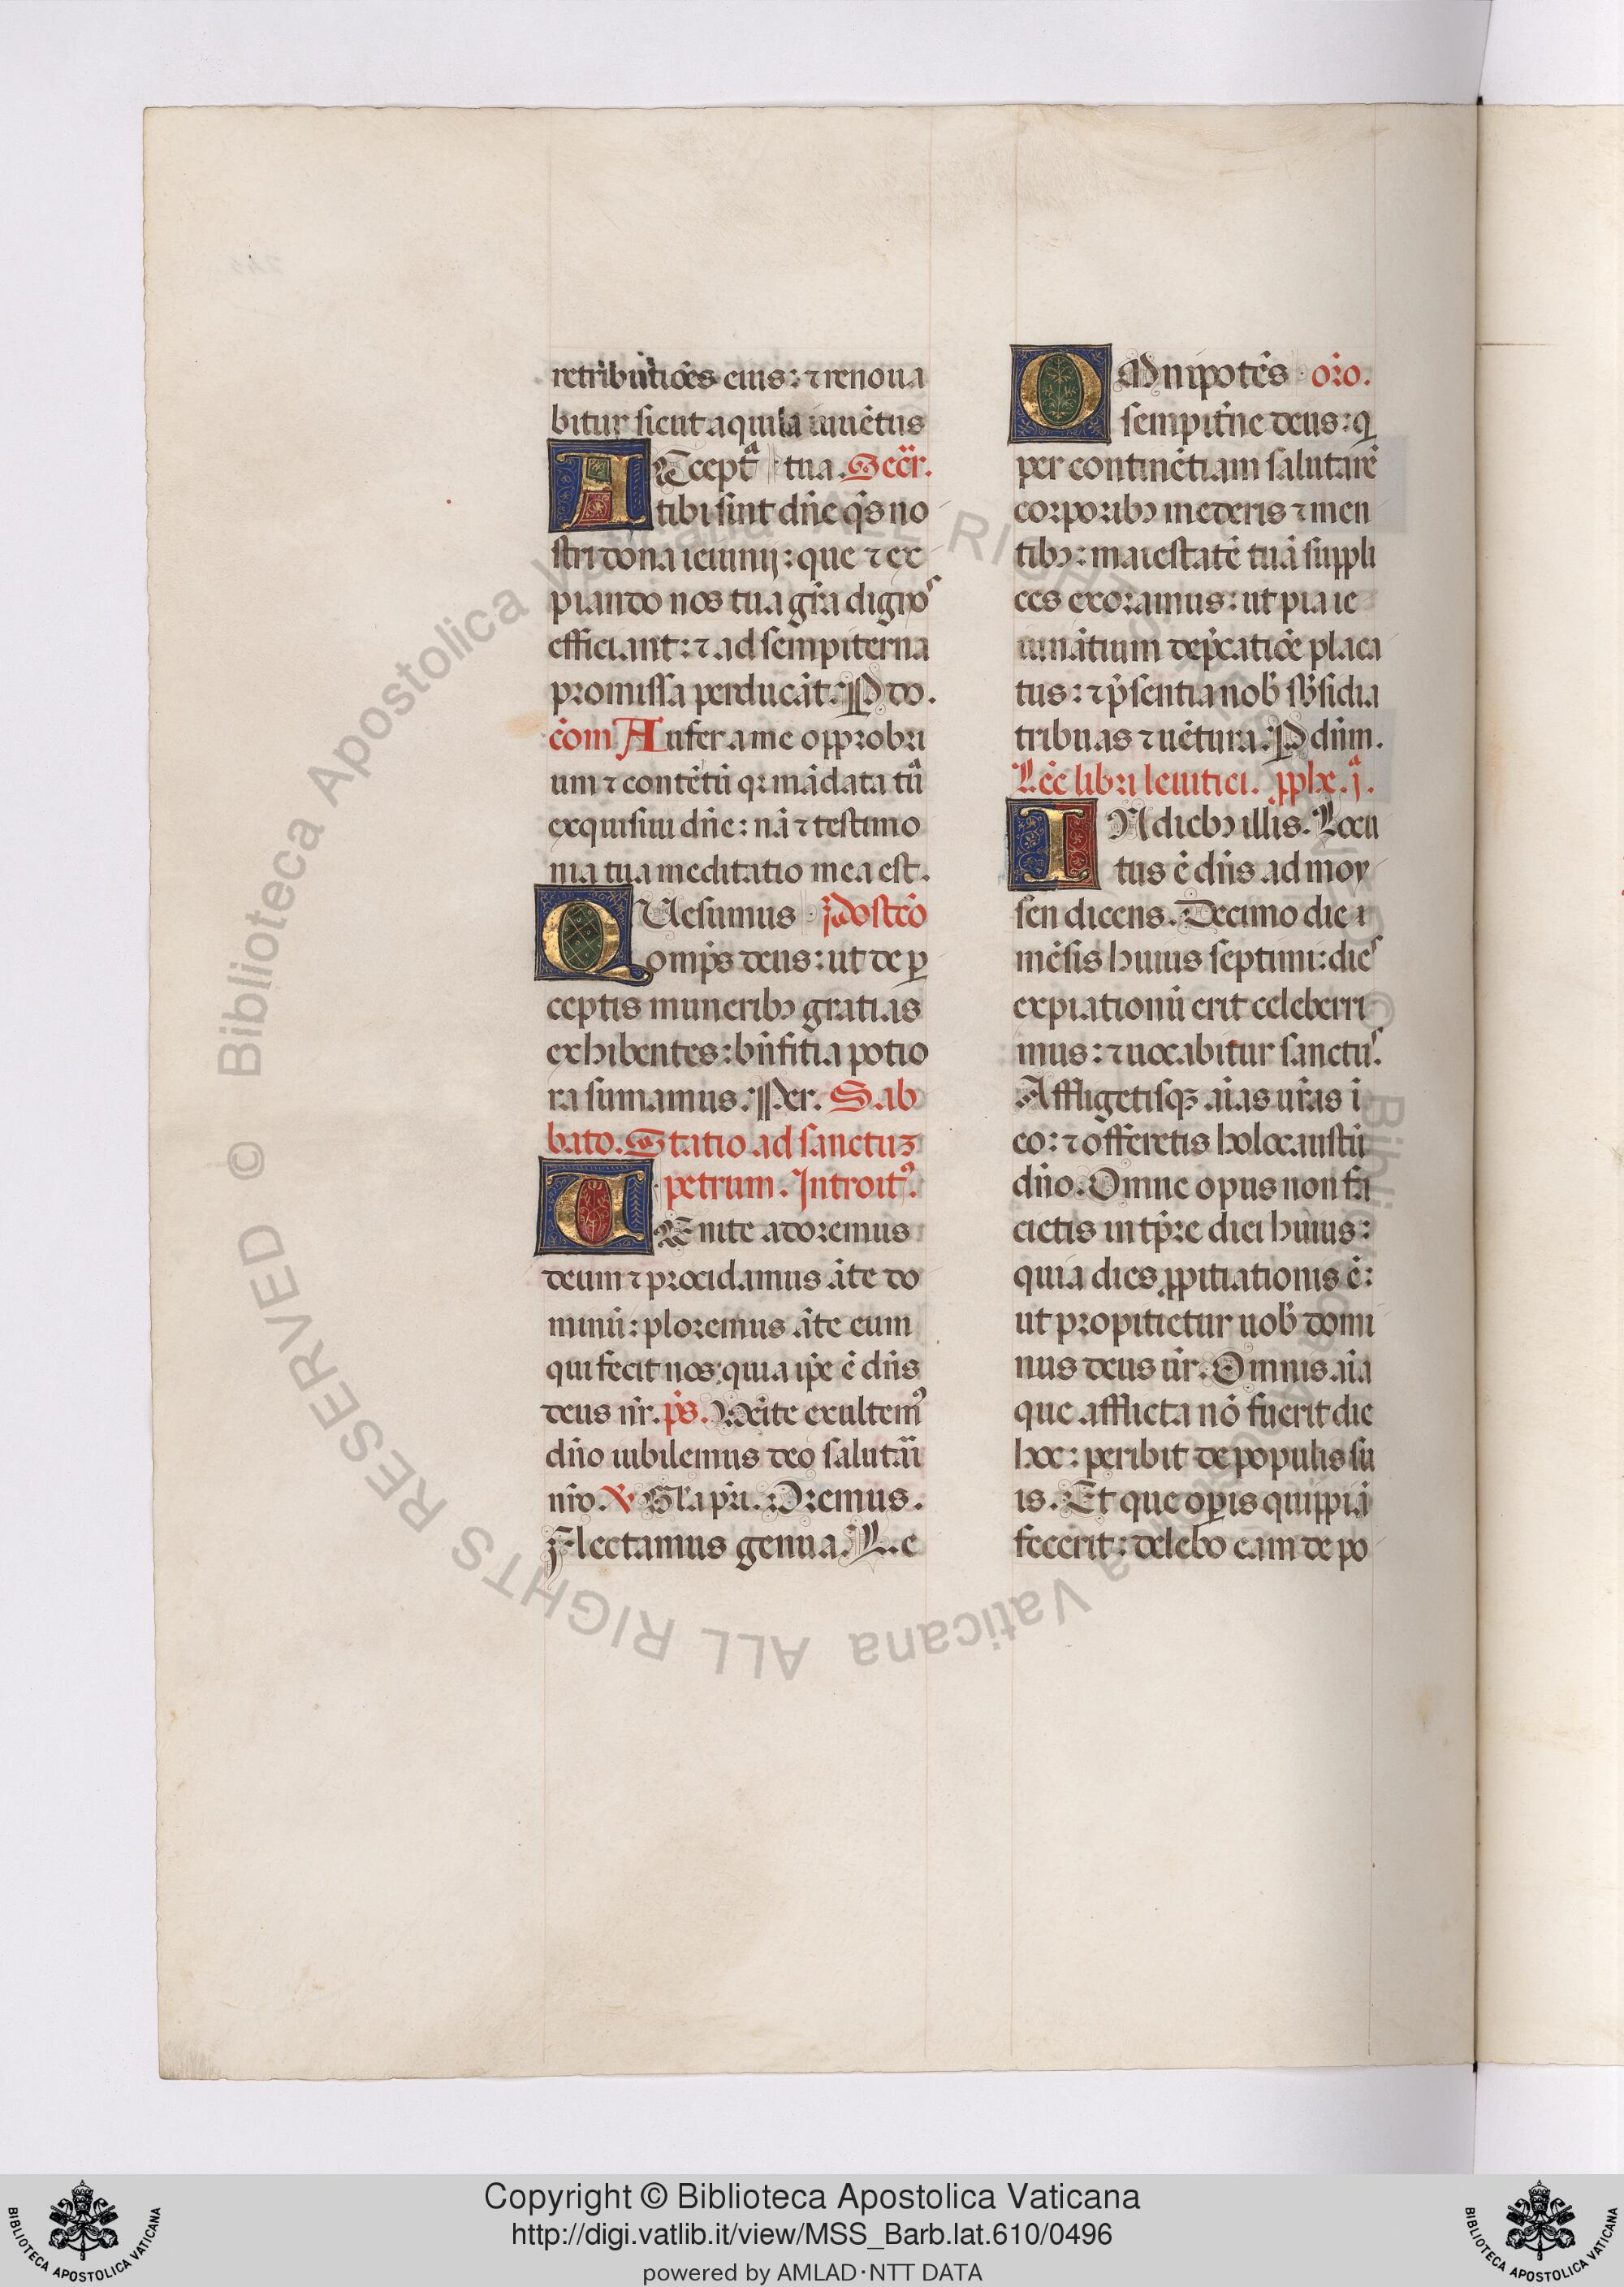 retributiões eius: ⁊ renoua
bitur sicut aquila iuuẽtus
ACcepta tua. Secr̃.
tibi sint dñe q̃s no
stri dona ieiunij: que ⁊ ex
piando nos tua gr̃a dignos
efficiant: ⁊ ad sempiterna
promissa perducãt. P do.
cõm Aufer a me opprobri
um ⁊ contẽtũ qr mãdata tua
exquisiui dñe: nã ⁊ testimo
nia tua meditatio mea est.
QUesumus postcõ
omp̃s deus: ut de ꝑ
ceptis muneribꝫ gratias
exhibentes: bñfitia potio
ra sumamus. Per. Sab
bato. Statio ad sanctuꝫ
petrum. Introitꝰ.
VEnite adoremus
deum ⁊ procidamus ãte do
minũ: ploremus ãte eum
qui fecit nos: quia ip̃e ẽ dñs
deus nr̃. p̃s. Veĩte exultemꝰ
dño iubilemus deo salutãi
nr̃o. V Gl̃a pr̃i. Oremus.
Flectamus genua. Le
OMnipotẽs or̃o.
sempitñe deus: q
per continẽtiam salutarẽ
corporibꝫ mederis ⁊ men
tibꝫ: maiestatẽ tuã suppli
ces exoramus: ut pia ie
iunãtium dep̃catiõe placa
tus: ⁊ p̃sentia nob̃ sb̃sidia
tribuas ⁊ uẽtura. P dñm.
Lẽc libri leuitici. pphe. j.
IN diebꝫ illis. Locu
tus ẽ dñs ad moy
sen dicens. Decimo die
mẽsis huius septimi: dies
expiationũ erit celeberri
mus: ⁊ uocabitur sanctus.
Affligetisqꝫ aĩas ur̃as ĩ
eo: ⁊ offeretis holocaustũ
dño. Omne opus non fa
cietis in tp̃re diei huius:
quia dies ꝓpitiationis ẽ:
ut propitietur uob̃ domi
nus deus ur̃. Omnis aĩa
que afflicta nõ fuerit die
hoc: peribit de populis su
is. Et que oꝑis quippiã
fecerit: delebo eam de po
Copyright © Biblioteca Apostolica Vaticana
http://digi.vatlib.it/view/MSS_Barb.lat.610/0496
powered by AMLAD·NTT DATA
© Biblioteca Apostolica Vaticana ALL RIGHTS RESERVED
© Biblioteca Apostolica Vaticana ALL RIGHTS RESERVED
BIBLIOTECA APOSTOLICA VATICANA
BIBLIOTECA APOSTOLICA VATICANA